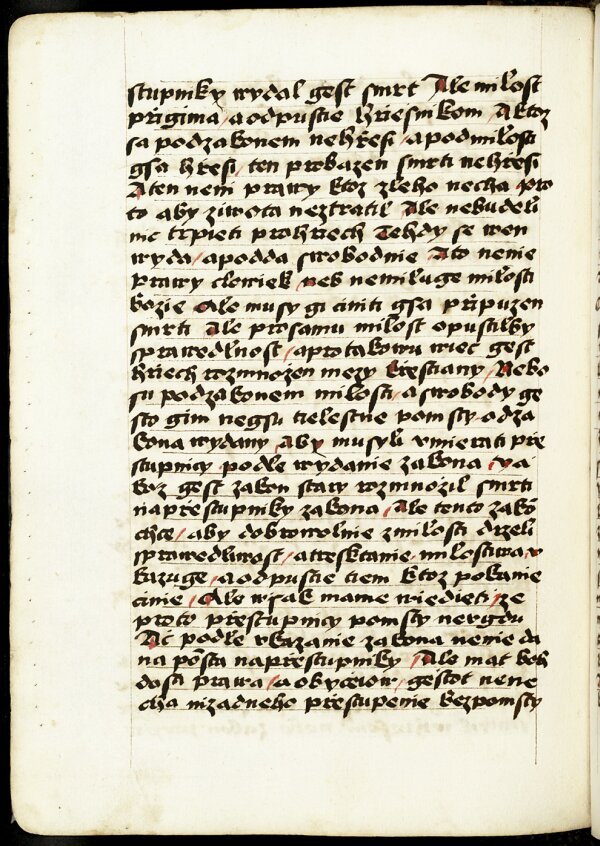 stupniky wydal gest smrt Ale milost
przigima / a odpustie hrziesnikom / A ktoz
sa podzakonem nehrzesi / apodmilosti
gsa hrzesi / ten probazen smrti nehrzesi
A ten neni prawy ktoz zleho necha pro
to aby ziwota neztratil Ale nebudeli
nic trpieti prohrziech Tehdy se wen
wyda / apodda swobodnie A to nenie
prawy clowiek / neb nemiluge milosti
bozie Ale musy gi ciniti gsa przipuzen
smrti Ale prosamu milost opustilby
sprawedlnost / aprotakowu wiec gest
hrziech rozmnozen mezy krestiany / Nebo
su podzakonem milosti / a swobody ge
sto gim negsu tielestne pomsty odza
kona wydany / Aby musyli vmierati prze
stupnicy podle wydanie zakona / ya
koz gest zakon stary rozmnozil smrti
naprzestupniky zakona / Ale tento zakō
chce / aby dobrowolnie zmilosti drzeli
sprawedlnost / atresktanie milostiwa v
kazuge / a odpustie tiem ktoz pokanie
cinie / Ale wssak mame wiedieti / ze
proto przestupnicy pomsty nevgdu
Ac podle vkazanie zakona nenie da
na pōsta naprzestupniky / Ale mat boh
dosti prawa / a obyceiow / gestot nene
cha nizadneho przestupenie bezpomsty